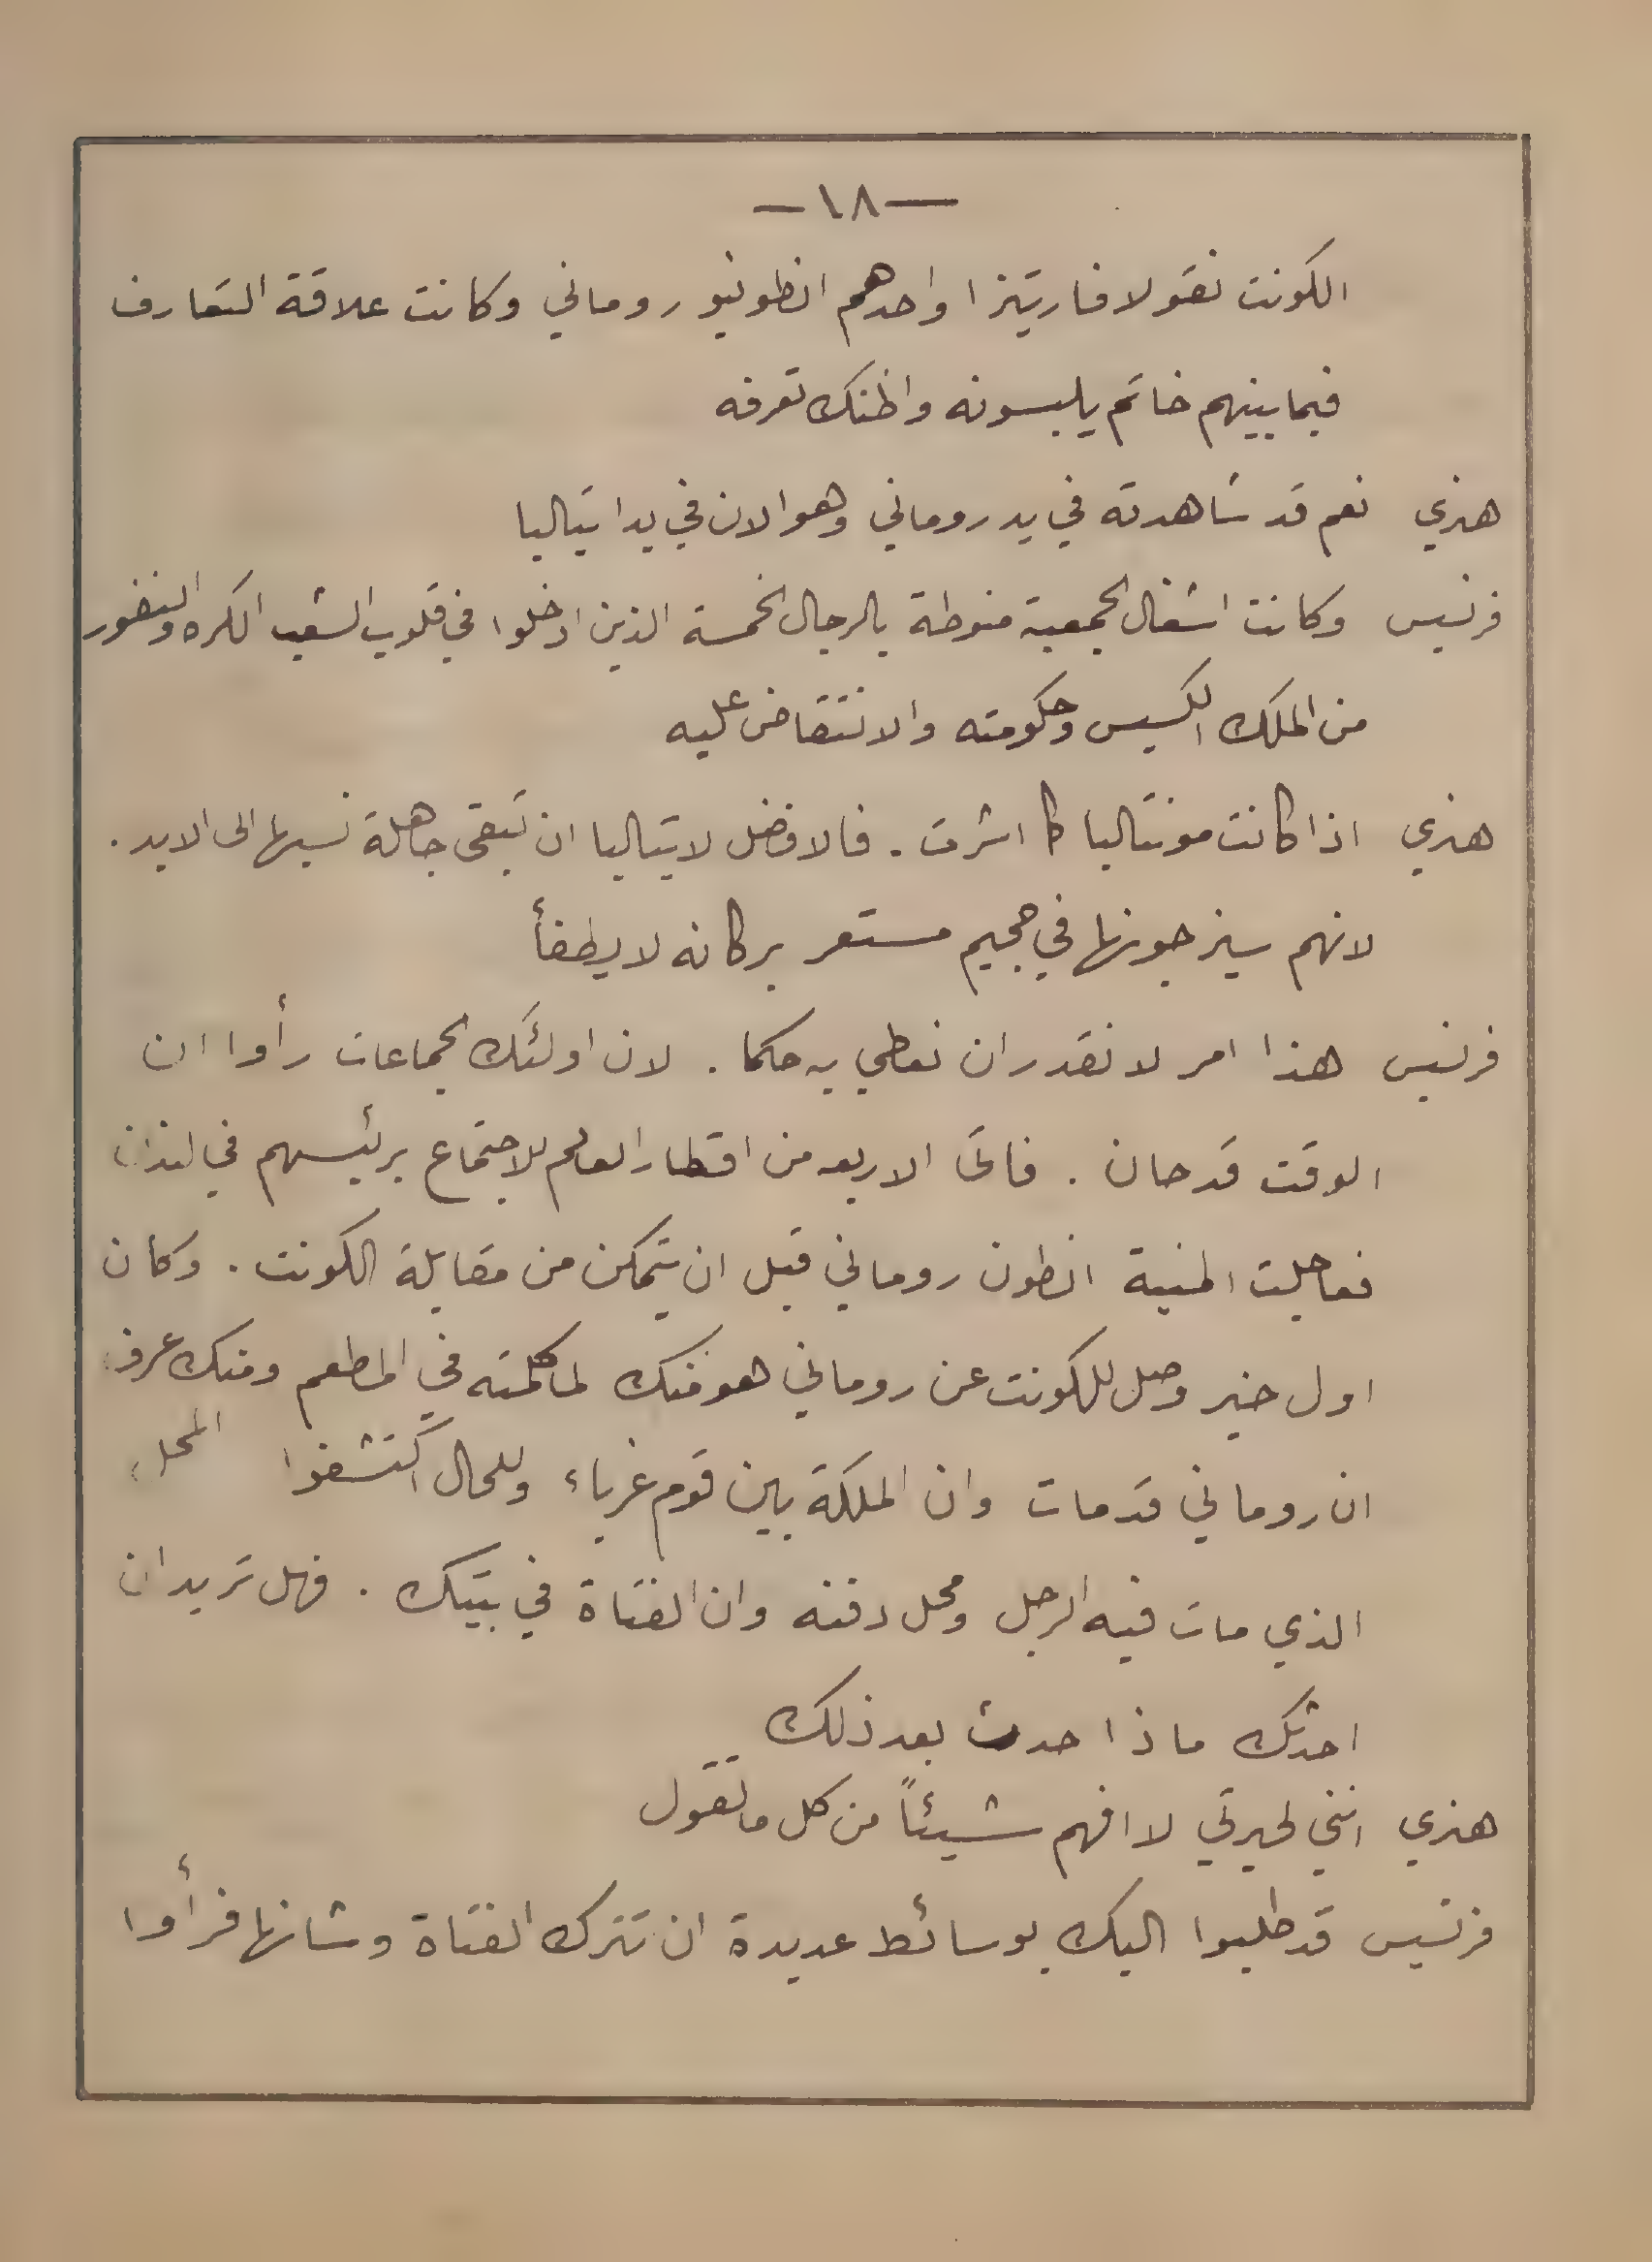 —١٨—
الكونت نقولا فاريتزا واحدهم انطونيو روماني وكانت علاقة التعارف
فيما بينهم خاتم يلبسونه واظنك تعرفه
هنري نعم قد شاهدته في يد روماني وهو الان في يد ايتاليا
فرنسيس وكانت اشغال الجمعية منوطة بالرجال الخمسة الذين ادخلوا في قلوب الشعب الكره والنفور
من الملك الكسيس وحكومته والانتقاض عليه
هنري اذا كانت مونتاليا كما اشرت . فالافضل لايتاليا ان تبقى جاهلة نسبها الى الابد .
لانهم سيزجونها في جحيم مستعر بركانه لا يطفأ
فرنسيس هذا امر لا نقدر ان نعطي به حكما . لان اولئك الجماعات رأوا ان
الوقت قد حان . فاتى الاربعه من اقطار العالم للاجتماع برئيسهم في لندن
فعاجلت المنية انطون روماني قبل ان يتمكن من مقابلة الكونت . وكان
اول خبر وصل للكونت عن روماني هو منك لما كلمته في المطعم ومنك عرف
ان روماني قد مات وان الملكة بين قوم غرباء وللحال اكتشفوا المحل
الذي مات فيه الرجل ومحل دفنه وان الفتاة في بيتك . فهل تريد ان
احدثك ماذا حدث بعد ذلك
هنري انني لحيرتي لا افهم شيئاً من كل ما تقول
فرنسيس قد طلبوا اليك بوسائط عديدة ان تترك الفتاة وشانها فرأوا